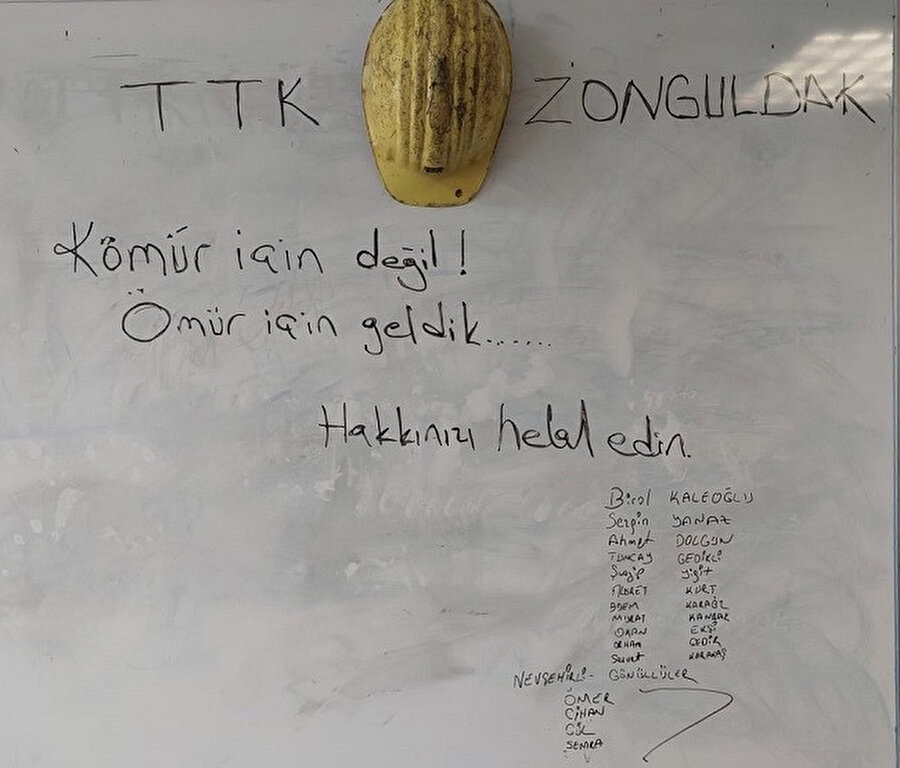 TTK ZONGULDAK
Kömür için değil!
Ömür için geldik.......
Hakkınızı helal edin.
Birol KALEOĞLU
Sezgin YANAZ
Ahmet DOLGUN
TUNCAY GEDİKLİ
Yiğit
FİKRET KURT
ADEM
MURAT
OKAN EKŞİ
ORHAN GEDİK
Servet KARAKAŞ
NEVŞEHİRLİ- GÖNÜLLÜLER
ÖMER
CİHAN
GÜL
SEMRA